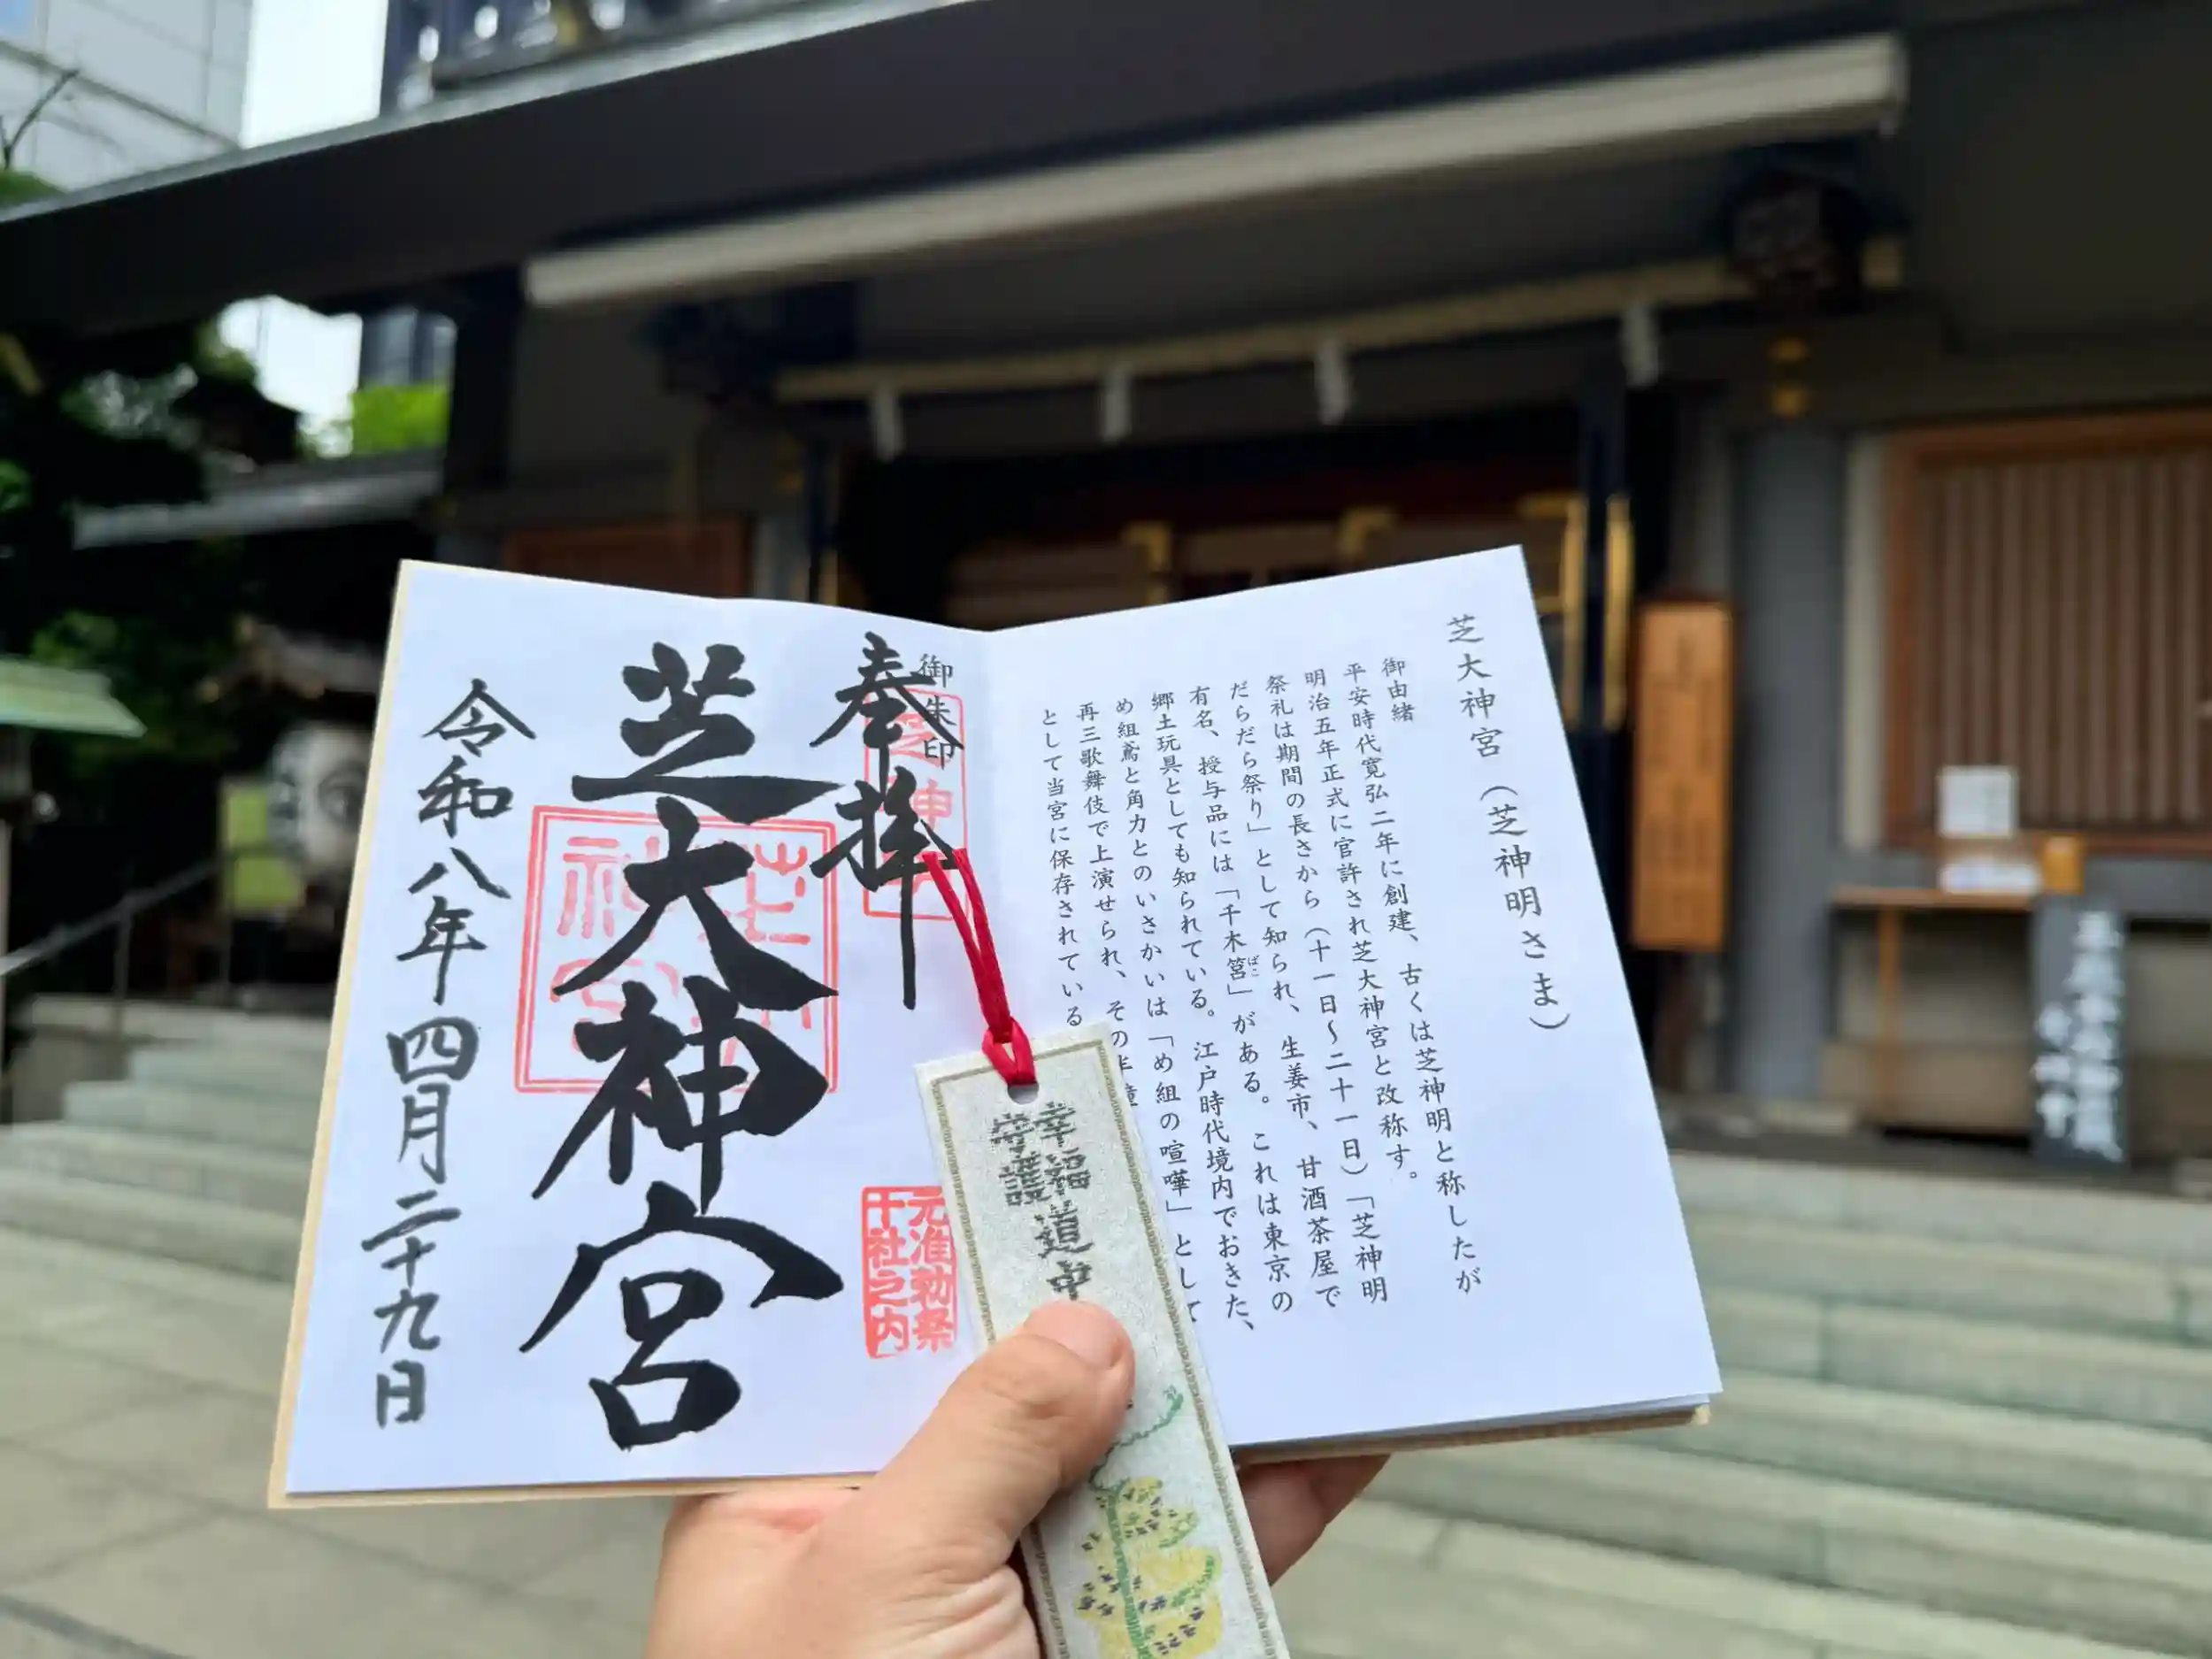 芝大神宮（芝神明さま）
御由緒
平安時代寛弘二年に創建、古くは芝神明と称したが
明治五年正式に官許され芝大神宮と改称す。
祭礼は期間の長さから（十一日～二十一日）「芝神明
だらだら祭り」として知られ、生姜市、甘酒茶屋で
有名、授与品には「千木筥」がある。これは東京の
ばこ
郷土玩具としても知られている。江戸時代境内でおきた、
め組鳶と角力とのいさかいは「め組の喧嘩」として
再三歌舞伎で上演せられ、その半鐘
として当宮に保存されている
御朱印
奉拝
芝大神宮
令和八年四月二十九日
元准勅祭
十社之内
幸福
守護
道中